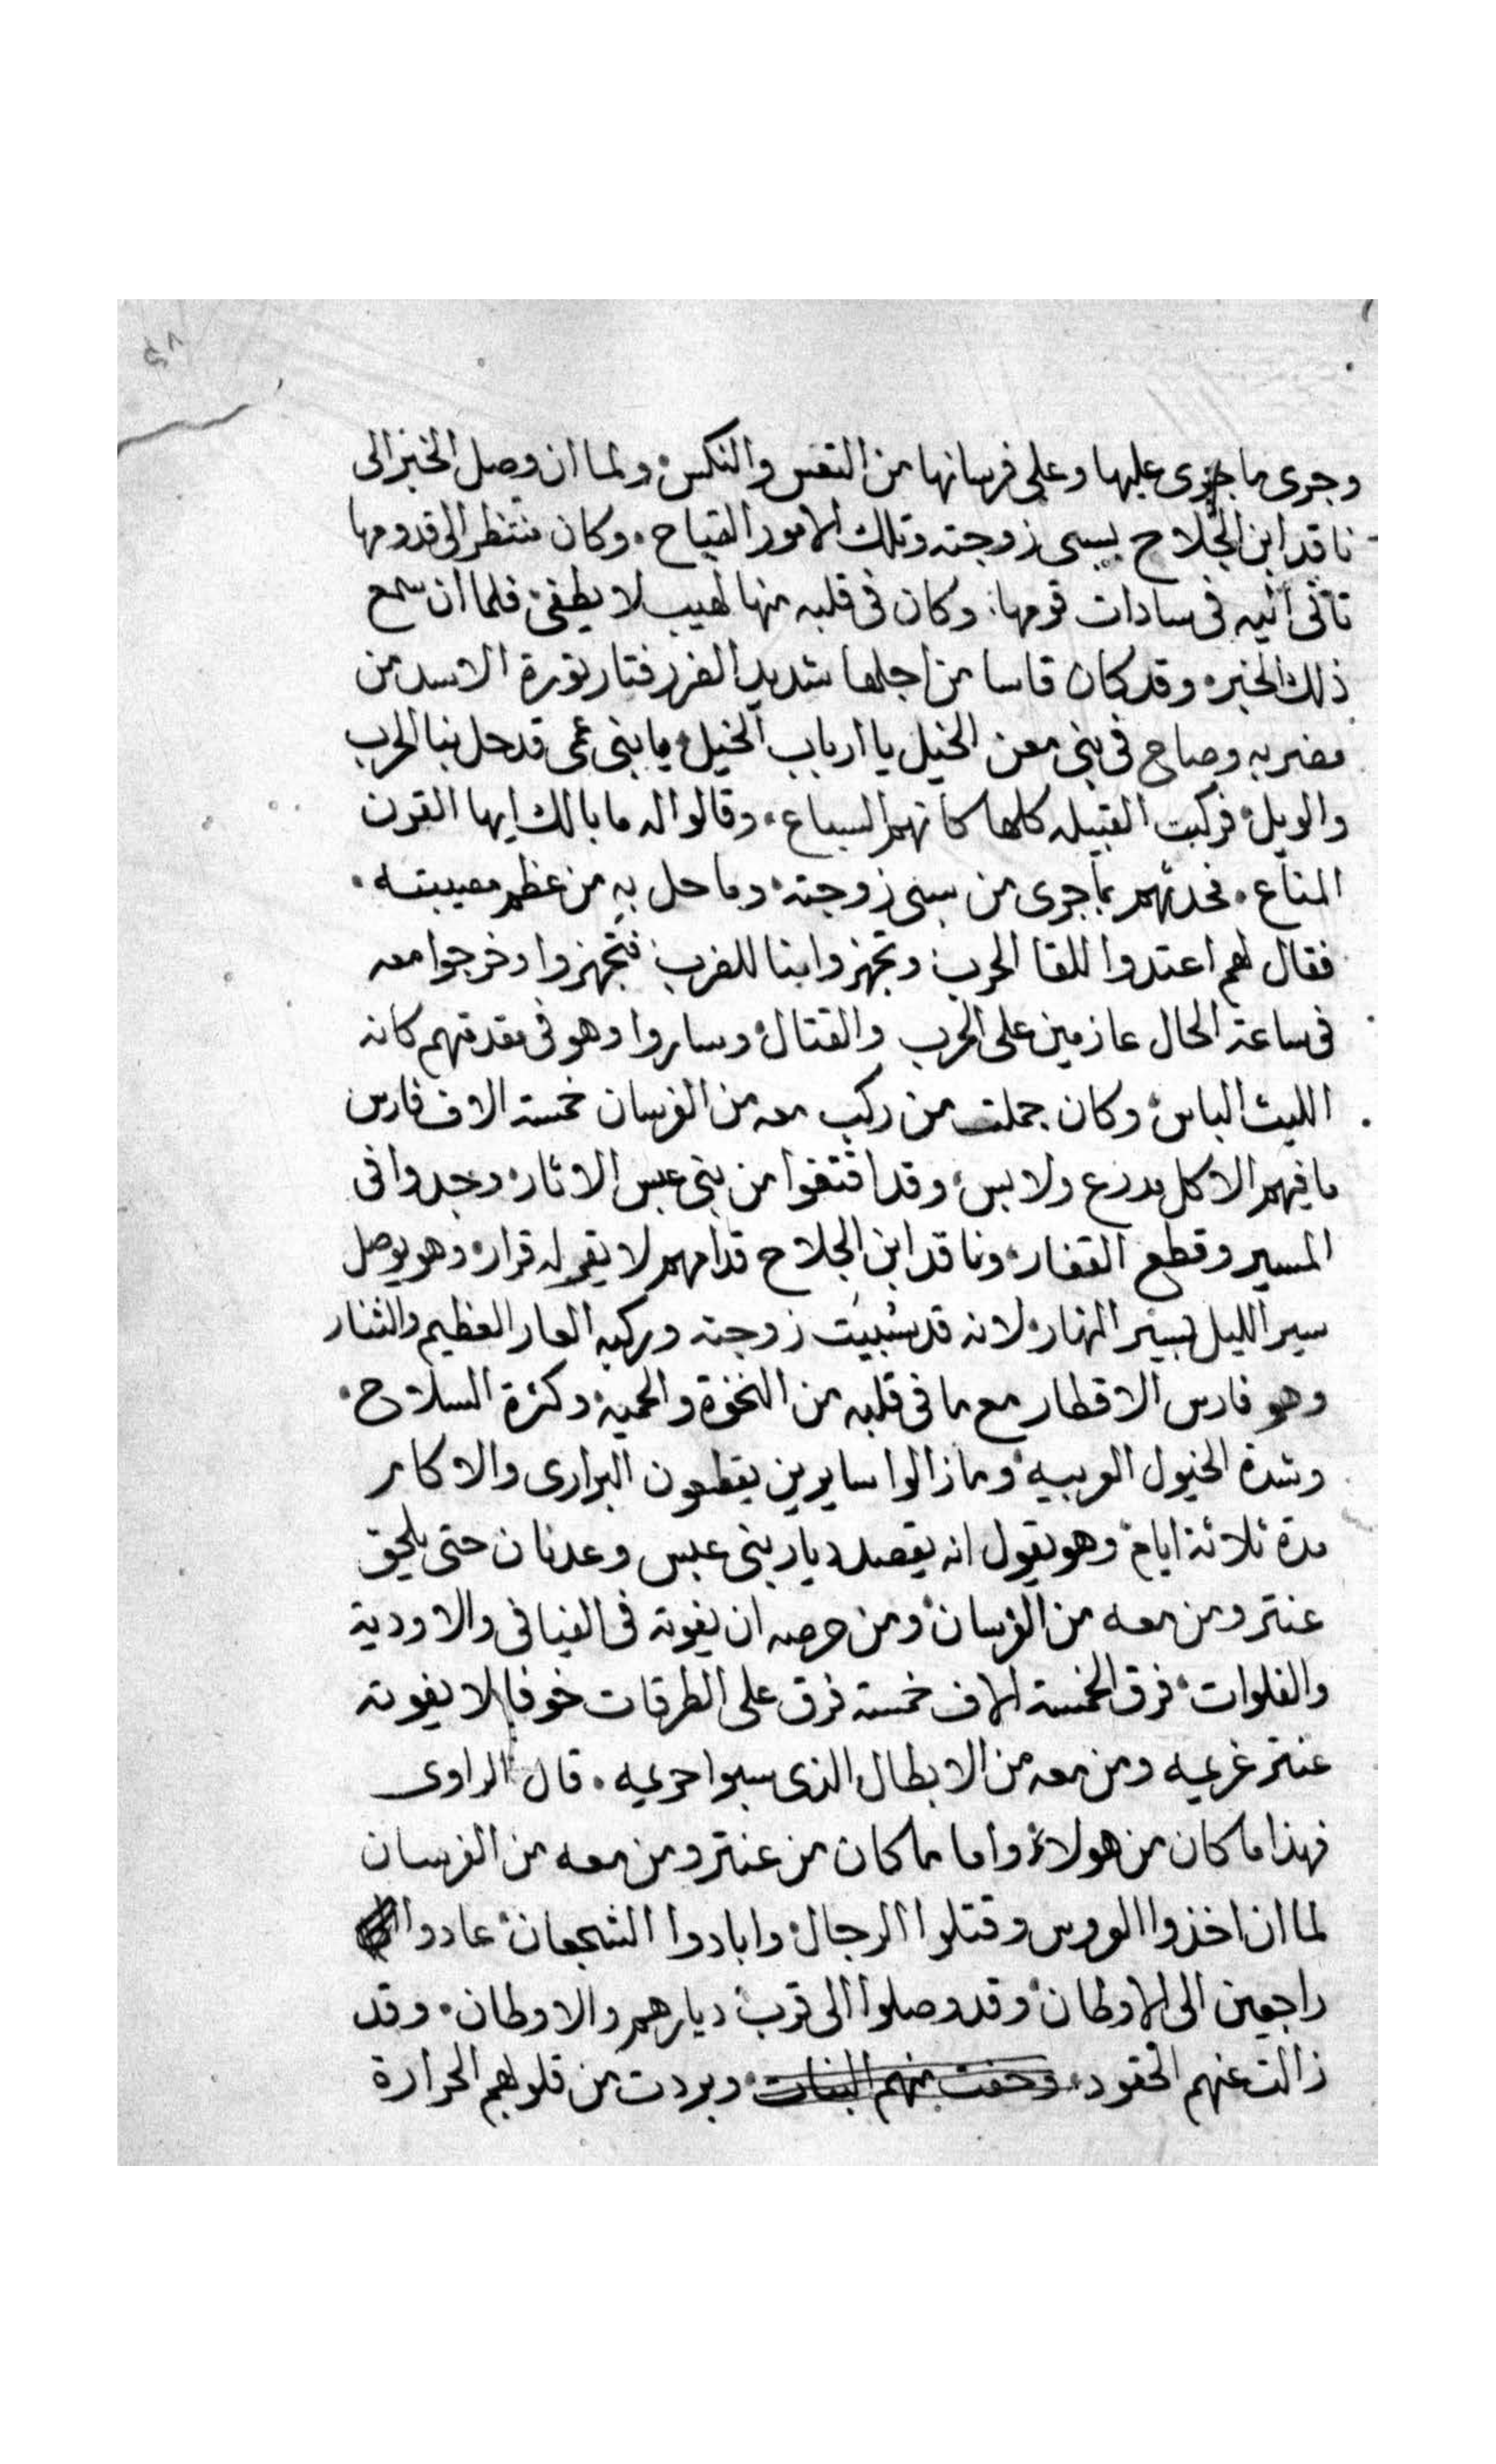 وجرى ما جرى عليها وعلى فرسانها من التعس والنكس، ولما ان وصل الخبر الى
ناقد ابن الجلاح بسبى زوجته وتلك الامور القباح. وكان منتظر الى قدومها
تاتى اليه فى سادات قومها. وكان فى قلبه منها لهيب لا يطفى فلما ان سمع
ذلك الخبر، وقد كان قاسا من اجلها شديد الضرر فثار ثورة الاسد من
مضربه وصاح فى بنى معن الخيل يا ارباب الخيل، يا بنى عمى قد حل بنا الحرب
والويل، فركبت القبيله كلها كانهم السباع، وقالوا له ما بالك ايها القرن
المناع. فحدثهم بما جرى من سبى زوجته، وما حل به من عظم مصيبته.
فقال لهم اعتدوا للقا الحرب وتجهزوا بنا للضرب فتجهزوا وخرجوا معه
فى ساعة الحال عازمين على الحرب والقتال، وساروا وهو فى مقدمتهم كانه
الليث الباس، وكان جملت من ركب معه من الفرسان خمسة الاف فارس
ما فيهم الا كل مدرع ولابس، وقد اقتفوا من بنى عبس الاثار، وجدوا فى
المسير وقطع القفار، وناقد ابن الجلاح قدامهم لا يقر له قرار، وهو يوصل
سير الليل بسير النهار، لانه قد سُبيَت زوجته وركبه العار العظيم والشنار
وهو فارس الاقطار مع ما فى قلبه من النخوة والحميه، وكثرة السلاح.
وشدة الخيول العربيه، وما زالوا سايرين يقطعون البرارى والاكام
مدة ثلاثة ايام، وهو يقول انه يقصد ديار بنى عبس وعدنان حتى يلحق
عنتر ومن معه من الفرسان، ومن حرصه ان يفوته فى الفيافى والاودية
والفلوات، فرق الخمسة الاف خمسة فرق على الطرقات خوفا لا يفوته
عنتر غريمه ومن معه من الابطال الذى سبوا حريمه. قال الراوى
فهذا ما كان من هولاء، واما ما كان من عنتر ومن معه من الفرسان
لما ان اخذوا العروس وقتلوا الرجال، وابادوا الشجعان، عادوا
راجعين الى الاوطان، وقد وصلوا الى قرب ديارهم والاوطان. وقد
زالت عنهم الحقود، وخفت منهم البغات، وبردت من قلوبهم الحرارة